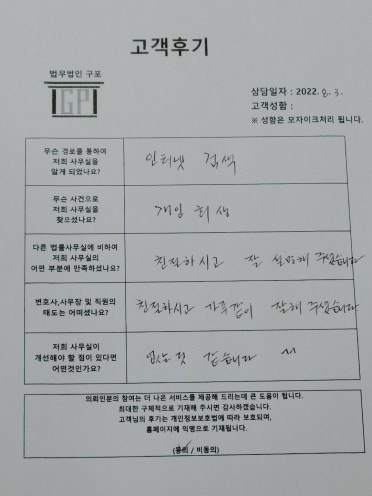 고객후기
법무법인 구포
GP
상담일자 : 2022. 8. 3.
고객성함 :
※ 성함은 모자이크처리 됩니다.
무슨 경로를 통하여
저희 사무실을
알게 되었나요?
인터넷 검색
무슨 사건으로
저희 사무실을
찾으셨나요?
개인 회생
다른 법률사무실에 비하여
저희 사무실의
어떤 부분에 만족하셨나요?
친절하시고 잘 설명해 주셨습니다
변호사,사무장 및 직원의
태도는 어떠셨나요?
친절하시고 가족같이 잘해 주셨습니다
저희 사무실이
개선해야 할 점이 있다면
어떤것인가요?
없는 것 같습니다 ^^
의뢰인분의 참여는 더 나은 서비스를 제공해 드리는데 큰 도움이 됩니다.
최대한 구체적으로 기재해 주시면 감사하겠습니다.
고객님의 후기는 개인정보보호법에 따라 보호되며,
홈페이지에 익명으로 기재됩니다.
(동의 / 비동의)